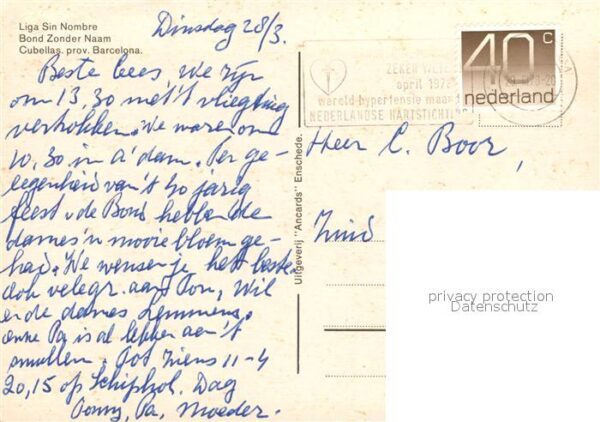 Liga Sin Nombre
Bond Zonder Naam
Cubellas. prov. Barcelona.
Dinsdag 28/3.
Beste Cees, We zijn
om 13,30 met 't vliegtuig
vertrokken. We waren om
10,30 in A'dam. Ter ge-
legenheid van 't 40 jarig
feest v. de Bond hebben de
dames 'n mooie bloem ge-
had. We wensen je het beste
ook velegr. aan Ton, Wil
en de dames Lemmens,
Pa is al lekker aan 't
smullen. Tot ziens 11-4
20,15 op Schiphol. Dag
Tonny, Pa, Moeder.
Uitgeverij "Ancards" Enschede.
ZEKER WETEN
april 1978
wereld hypertensie maand
NEDERLANDSE HARTSTICHTING
40c
nederland
Heer C. Boor,
privacy protection
Datenschutz